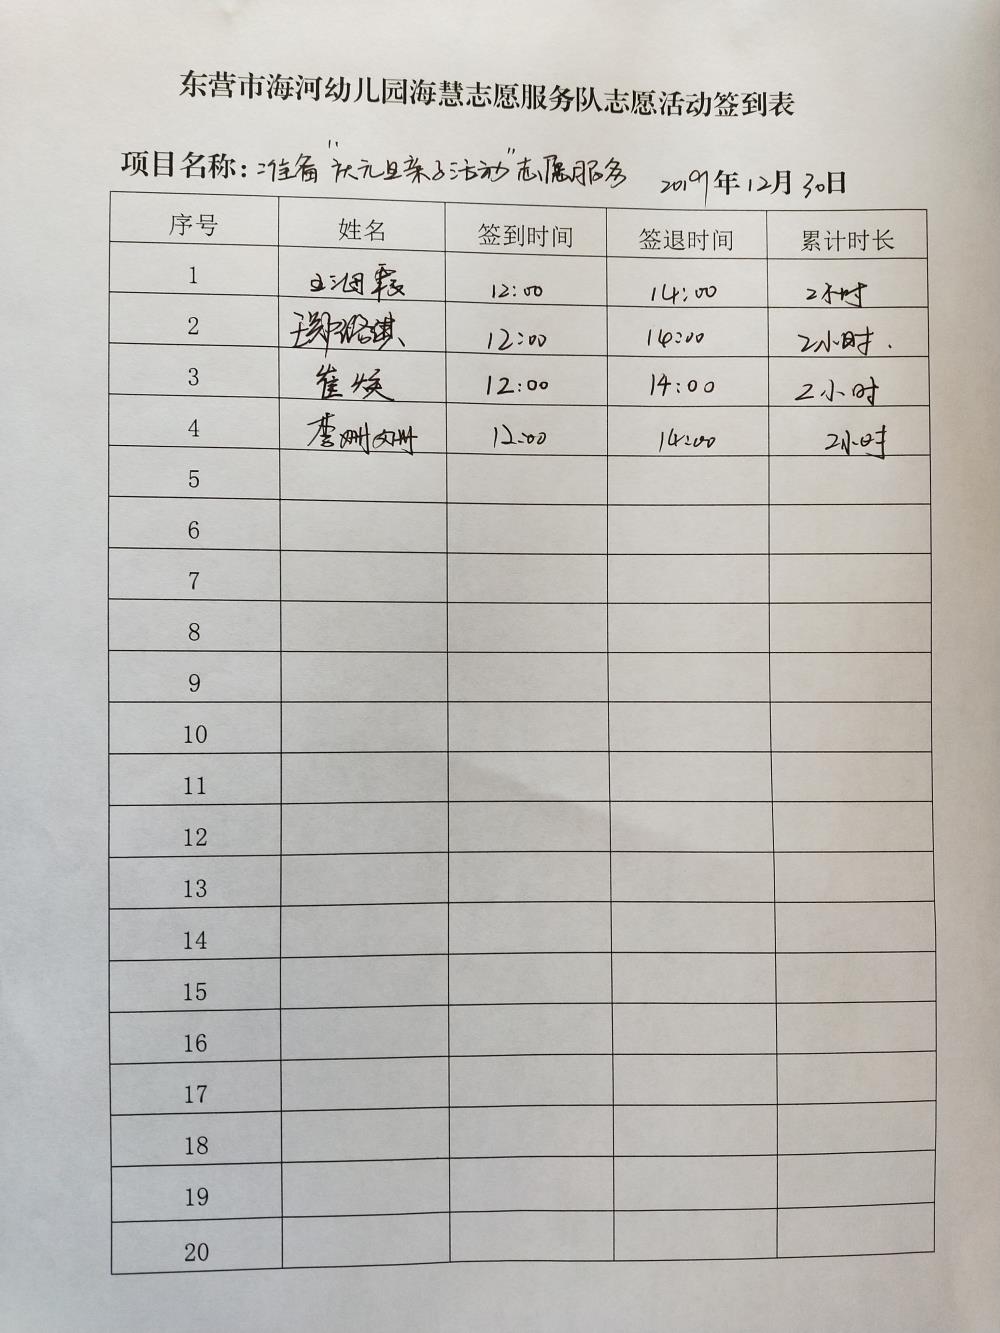 东营市海河幼儿园海慧志愿服务队志愿活动签到表
项目名称：准备“庆元旦亲子活动”志愿服务 2019年12月30日
序号 姓名 签到时间 签退时间 累计时长
1 12:00 14:00 2小时
2 12:00 14:00 2小时.
3 崔焕 12:00 14:00 2小时
4 李珊珊 12:00 14:00 2小时
5
6
7
8
9
10
11
12
13
14
15
16
17
18
19
20